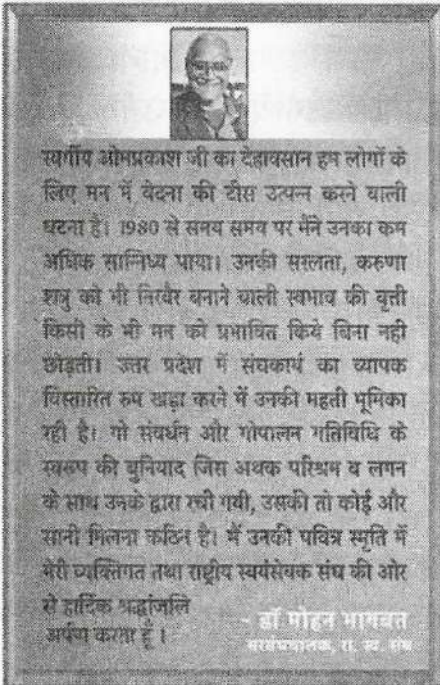 स्वर्गीय ओमप्रकाश जी का देहावसान हम लोगों के
लिए मन में वेदना की टीस उत्पन्न करने वाली
घटना है। 1980 से समय समय पर मैंने उनका कम
अधिक सान्निध्य पाया। उनकी सरलता, करुणा
शत्रु को भी निरवैर बनाने वाली स्वभाव की वृत्ती
किसी के भी मन को प्रभावित किये बिना नही
छोड़ती। उत्तर प्रदेश में संघकार्य का व्यापक
विस्तारित रुप खड़ा करने में उनकी महती भूमिका
रही है। गो संवर्धन और गोपालन गतिविधि के
स्वरूप की बुनियाद जिस अथक परिश्रम व लगन
के साथ उनके द्वारा रची गयी, उसकी तो कोई और
सानी मिलना कठिन है। मैं उनकी पवित्र स्मृति में
मेरी व्यक्तिगत तथा राष्ट्रीय स्वयंसेवक संघ की ओर
से हार्दिक श्रद्धांजलि
अर्पण करता हूँ।
- डॉ मोहन भागवत
सरसंघचालक, रा. स्व. संघ